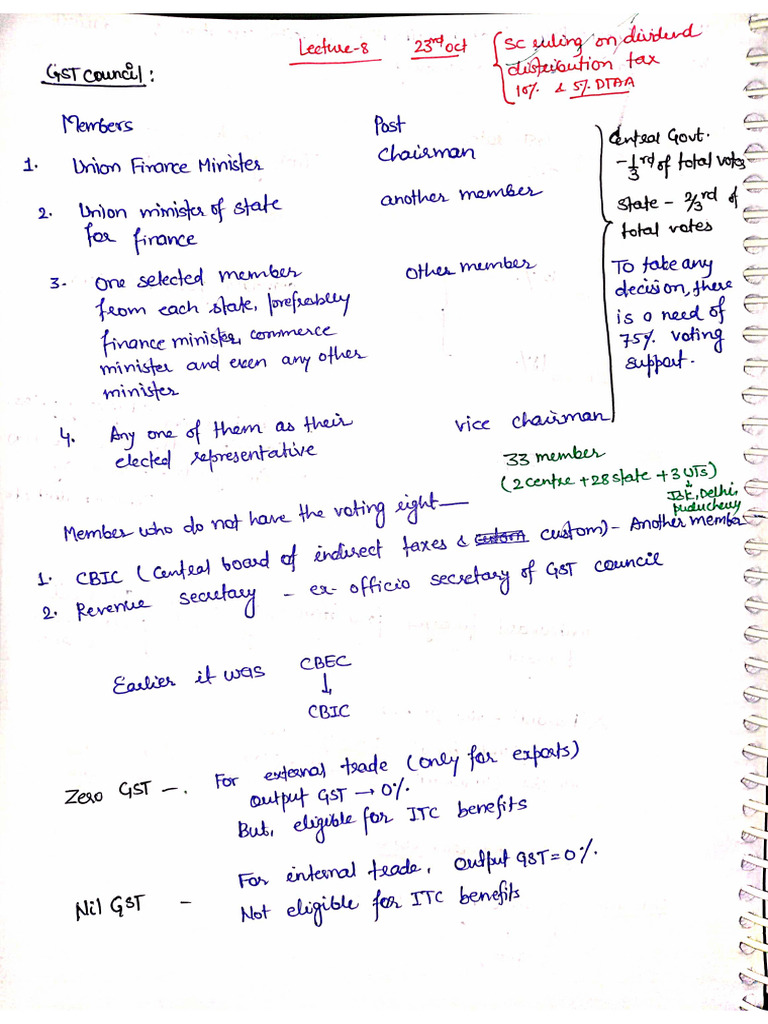 Lecture-8 23rd oct
SC ruling on dividend
distribution tax
10% & 5% DTAA
GST Council :
Members Post
1. Union Finance Minister Chairman
2. Union minister of state another member
for finance
3. One selected member other member
from each state, preferebly
finance minister, commerce
minister and even any other
minister
4. Any one of them as their vice chairman
elected representative
Central Govt.
- 1/3rd of total votes
State - 2/3rd of
total votes
To take any
decision, there
is a need of
75% voting
support.
33 member
(2 centre + 28 state + 3 UTs)
J&K, Delhi,
Puducherry
Member who do not have the voting right —
1. CBIC (Central board of indirect taxes & custom custom) - Another member
2. Revenue secretary - ex-officio secretary of GST council
Earlier it was CBEC
↓
CBIC
Zero GST —. For external trade (only for exports)
Output GST → 0%.
But, eligible for ITC benefits
Nil GST - For internal trade, output GST = 0%.
Not eligible for ITC benefits